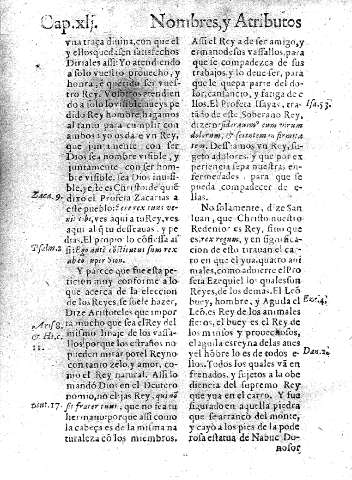 Cap.xlj. Nombres, y Atributos
vna traça diuina, con que el
y ellos quedassen satisfechos
Dirales assi: Yo atendiendo
a solo vuestro prouecho, y
honra, è querido ser vuestro
Rey. Vosotros atendien
do a solo lo visible, aueys pe
dido Rey hombre, hagamos
al tanto para cumplir con
ambas: yo os daré vn Rey,
que juntamente con ser
Dios sea hombre visible, y
juntamente con ser hom
bre visible, sea Dios inuisi
ble, y este es Christo: de quié
Zaca. 9. dixo el Profeta Zacarias a
este pueblo: Ecce rex tuus ve
nit tibi, ves aqui a tu Rey, ves
aqui al q̃ tu desseauas, y pe
Psalm. 2. dias. El propio lo cõfiessa as
si: Ego autē constitutus sum rex
ab eo super Sion.
Y parece que fue esta pe
ticion muy conforme a lo
que acerca de la eleccion
de los Reyes, se suele hazer,
Arist. 8. Dize Aristoteles que impor
ta mucho que sea el Rey del
mismo linaje de los vassa
11. llos, porque los estraños no
pueden mirar por el Reyno
con tanto zelo, y amor, co
mo el Rey natural. Assi lo
mandò Dios en el Deutero
nomio, no elijas Rey, qui nõ
Deut. 17. sit frater tuus, que no sea tu
hermano: porque assi como
la cabeça es de la misma na
turaleza cõ los miembros.
Assi el Rey a de ser amigo, y
ermano de sus vassallos, para
que se compadezca de sus
trabajos, y lo deue ser, para
que le quepa parte del do-
lor, cansancio, y fatiga de
Isa. 53. ellos. El Profeta Isayas, tra
tādo de este Soberano Rey,
dize: Desiderauimus eum virum
dolorum, & scientem infirmita
tem. Desseamos vn Rey, su-
geto a dolores, y que por ex
periencia sepa nuestras en-
fermedades, para que se
pueda compadecer de e-
llas.
No solamente, dize San
Iuan, que Christo nuestro
Redentor es Rey, sino que
es rex regum, y en significa-
cion de esto tirauan el car
ro en que el yua, quatro ani
males, como aduierte el Pro
feta Ezequiel lo qual es sun
Reyes, de los demas. El Leõ
Eze. 4. buey, hombre, y Aguila el
Leõ, es Rey de los animales
fieros, el buey es el Rey de
los mansos y prouechosos,
el aguila es reyna de las aues
Dan. 2. y el hõbre lo es de todos e-
llos. Todos los quales vā en
frenados, y sujetos a la obe
diencia del supremo Rey
que yua en el carro. Y fue
figurado en aquella piedra
que se arrancò del monte,
y cayò a los pies de la pode
rosa estatua de Nabuc Do-
nosor